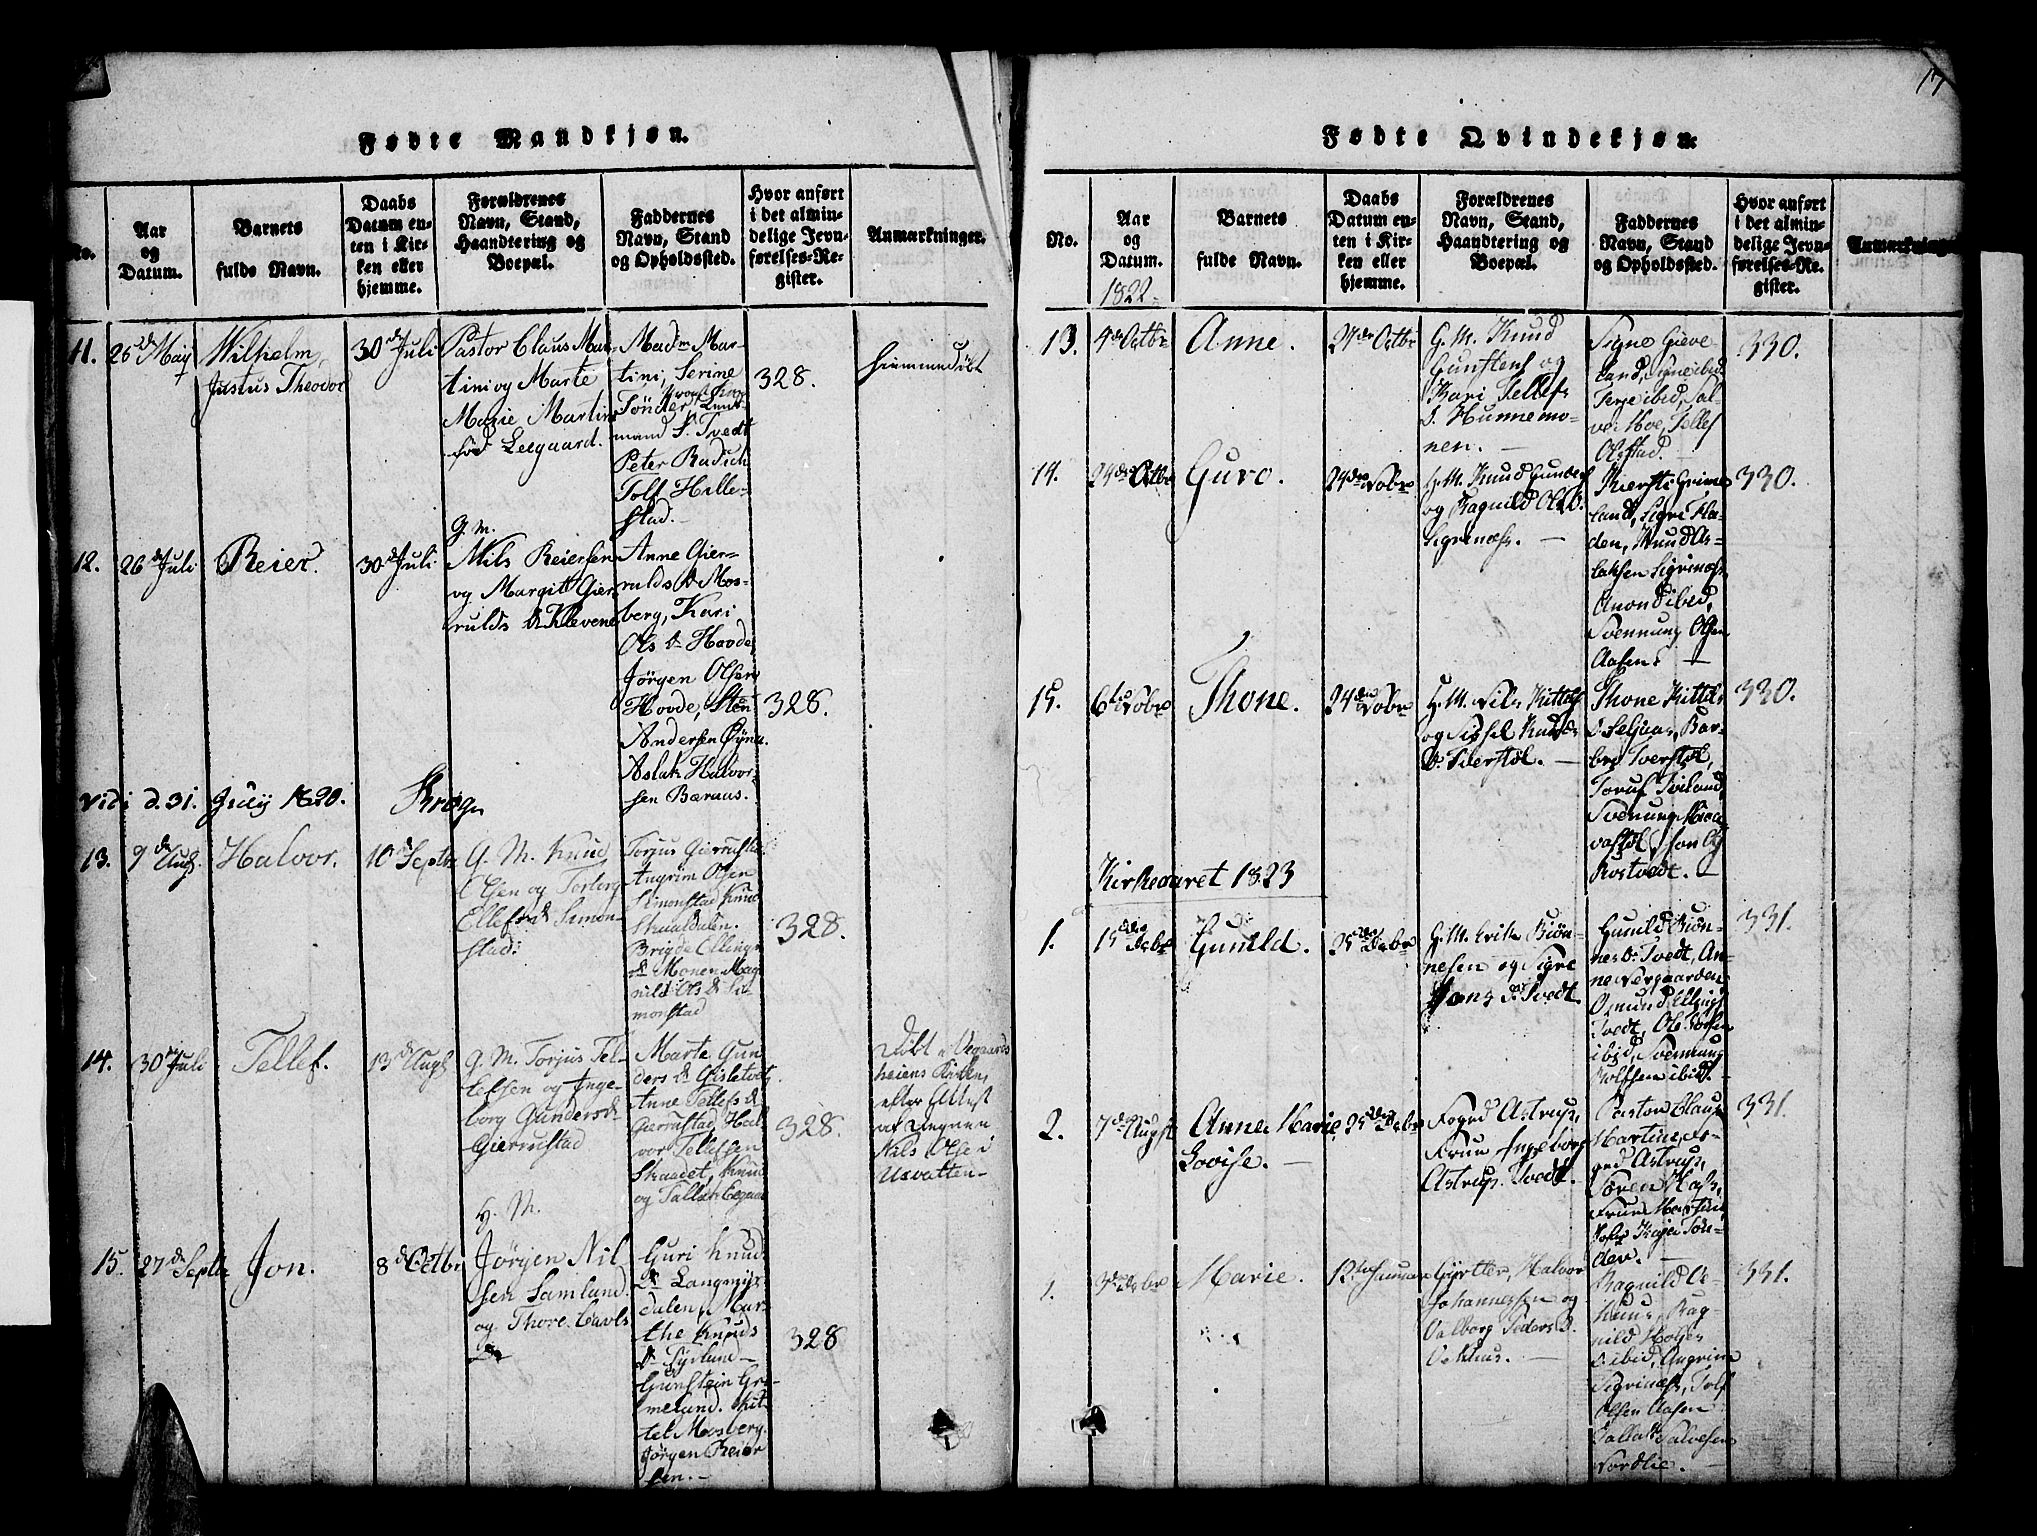 Fødte Mandkjøn.
No.
Aar
og
Datum.
Barnets
fulde Navn.
Daabs
Datum en-
ten i Kir-
ken eller
hjemme.
Forældrenes
Navn, Stand,
Haandtering og
Boepæl.
Faddernes
Navn, Stand
og Opholdssted.
Hvor anført
i det almin-
delige Jevn-
førelses-Re-
gister.
Anmærkninger.
11.
26 de May
Wilhelm,
Justus Theodor
30 d Juli
Pastor Claus Mar-
tini og Marte
Marie Martini
fød Leegaard.
Madm Mar-
tini, Serine
Tønder
mand S. Tvedt
Peter Radich
Tolf Hille-
stad.
328.
hiemmedøbt
12.
26 d Juli
Reier.
30 d Juli
G. M.
Nils Reiersen
og Margit Gier-
rulds D. Klevene
Anne Gier-
rulds D. Mos-
berg, Kari
Ols D. Hovde,
Jørgen Olsen
Hovde, Sten
Andersen Øyna.
Aslak Halvor-
sen Bæraas.
328.
Vidi d. 31. July 1820. Krog
13.
9 de Aug.
Halvor.
10 d Septr
G. M. Knud
Olsen og Torborg
Ellefs D. Simon-
stad.
Torjus Gierrustad
Angrim Olsen
Simonstad, Knud
Skaaldalen.
Brigde Ellings
D. Monen, Mag
nild Ols D. Si-
monstad
328.
14.
30 d Juli
Tellef.
13 d Augt
G. M. Torjus Tel-
lefsen og Inge-
borg Gunders D.
Gierrustad
Marte Gun
ders D. Gisletvedt
Anne Tellefs D.
Gierrustad, Hal-
vor Tellefsen
Skaadet, Knud
og Tallak
328.
Døbt i Vegaards
heiens Kirke,
efter Attest
af
Nils Olsen
Usvatten
15.
27 d Septr
Jon.
8 d Octbr
G. M.
Jørgen Nil-
sen Samlund
og Thore Cavls
D.
Guri Knud
D. Langmyr
dalen, Mar-
the Knuds
D. Syrlund
Gunstein Gri-
melund. Kit-
tel Mosberg.
Jørgen Reier
sen.
328
17
Fødte Qvindekjøn.
No.
Aar
og
Datum.
1822.
Barnets
fulde Navn.
Daabs
Datum en-
ten i Kir-
ken eller
hjemme.
Forældrenes
Navn, Stand,
Haandtering og
Boepæl.
Faddernes
Navn, Stand
og Opholdssted.
Hvor anført
i det almin-
delige Jevn-
førelses-Re-
gister.
Anmærkninger
13.
4 de Octbr
Anne.
27 de Octbr
G. M. Knud
Gunstens og
Kari Tellefs
D. Hunnemo-
nen.
Signe Gieve
land, Signe ibid
Terje ibid, Sal-
ve Hoe, Tellef
Olsstad.
330.
14.
24 de Octbr
Guro.
24 de Nobr
G. M. Knud Gunders
og Ragnild Ols D.
Sigrenæss.
Kiersti Grime
land, Sigri Fla-
den, Knud As-
laksen Sigrinæss,
Anond ibid,
Svennung Olsen
Aasen.
330.
15.
6 te Nobr
Thone.
24 de Nobr
G. M. Nils Kittels
og Sissel Knuds
D. Tverstøl.
Thone Kittels
D. Seljaas, Bar-
bro Tverstøl,
Toruf Tveland,
Svennung
Rostvedt.
330.
Kirkeaaret 1823
1.
15 de Debr
Gunild.
25 de Debr
G. M. Erik Biøn-
nesen og Sigre
Jons D. Tvedt.
Gunild Biøn-
nes D. Tvedt, An-
ne Nergaarden
Osmund Ellings
Tvedt, Ole
ibid, Svennung
Rolfsen ibid.
331.
2.
7 de Augst
Anne Marie
Lovise.
25 de Debr
Foged Astrup,
Frue Ingeborg
Astrup. Tvedt.
Pastor Claus
Martini, Fo-
ged Astrup,
Søren
Frue Martini
Kajer Tøn-
der.
331.
1.
3 de Debr
Marie.
12 Januar
Gyrtler, Halvor
Johannessen og
Valborg Peders D.
Vehuus.
Ragnild Ve-
huus, Rag-
nild
D. ibid, Angrim
Sigrinæss, Tolf
Olsen Aasen
Tallak Salvesen
Nordlie.
331.